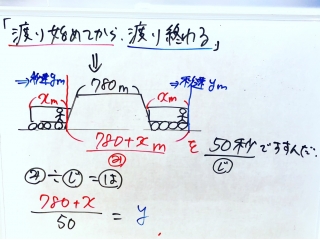 「渡り始めてから、渡り終わる」
⇒秒速ym 780m ⇒秒速ym
xm xm
780+xm を 50秒ですすんだ。
み じ
み÷じ=は
780+x
50 = y